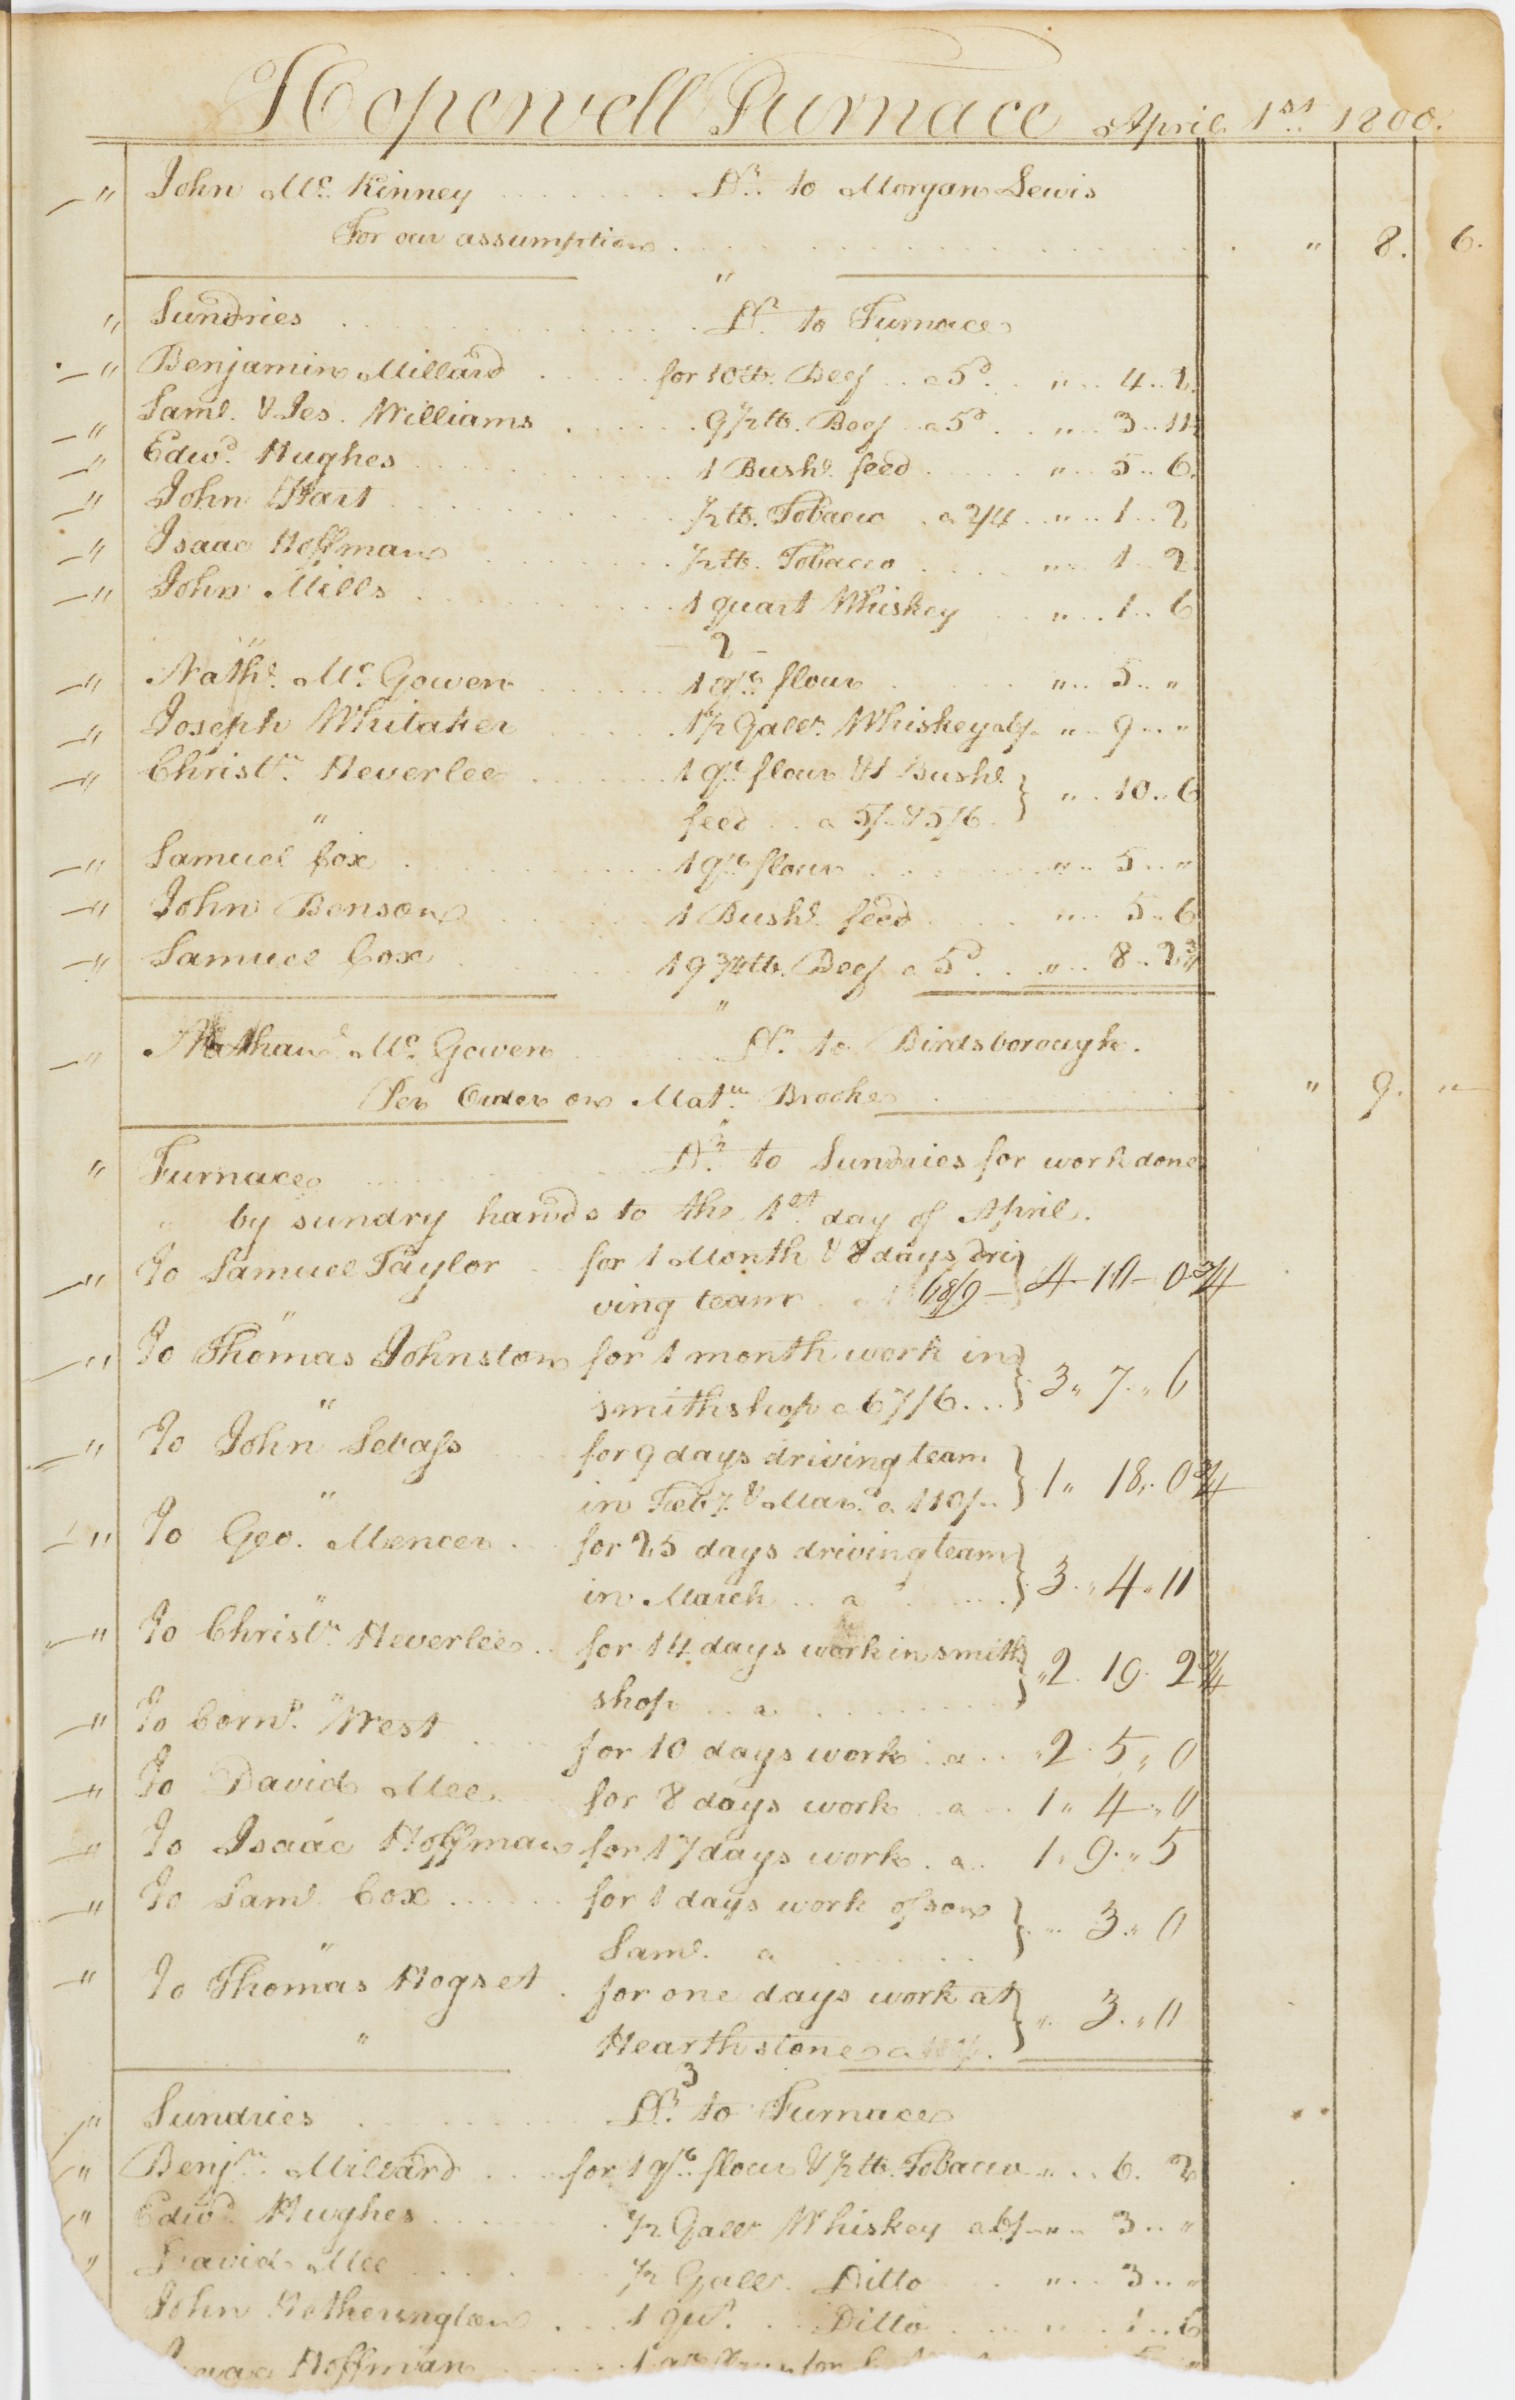 Hopewell Furnace April 1st 1800.
" John Mc. Kinney Dr. to Morgan Lewis
For our assumption " 8. 6.
"
" Sundries Dr. to Furnace
" Benjamin Millard for 10 lb. Beef a 5d. " 4 .. 2
" Saml. & Jes. Williams 9 1/2 lb. Beef a 5d. " 3 .. 11 1/2
" Edwd. Hughes 1 Bushl. feed " 5 .. 6
" John Hart 1/2 lb. Tobacco a 2/4 " 1 .. 2
" Isaac Hoffman 1/2 lb. Tobacco " 1 .. 2
" John Mills 1 quart Whiskey " 1 .. 6
" 2
" Nathl. Mc. Gowen 1 qr. flour " 5 .. "
" Joseph Whitaker 1 1/2 Galln. Whiskey a 6/- " 9 .. "
" Christn. Heverlee 1 qr. flour & 1 Bushl. } " 10 .. 6
" feed a 5/- & 5/6
" Samuel Cox 1 qr. flour " 5 .. "
" John Benson 1 Bushl. feed " 5 .. 6
" Samuel Cox 19 3/4 lb. Beef a 5d. " 8 .. 2 3/4
"
" Nathanl. Mc. Gowen Dr. to Birdsborough.
Per Order on Matw. Brooke " 9. "
" Furnace Dr. to Sundries for work done
" by sundry hands to the 1st. day of April.
" To Samuel Taylor for 1 Month & 8 days dri
" ving team 68/9 } 4 - 10 - 0 3/4
" To Thomas Johnston for 1 month work in
" smithshop a 67/6 } 3 " 7 " 6
" To John Sebass for 9 days driving team
" in Feby. & Mar. a 110/- } 1 " 18 " 0 3/4
" To Geo. Mencer for 25 days driving team
" in March a } 3 " 4 " 11
" To Christn. Heverlee for 14 days work in smith
" shop a } 2 " 19 " 2 3/4
" To Corns. West for 10 days work a 2 " 5 " 0
" To David Mee for 8 days work a 1 " 4 " 0
" To Isaac Hoffman for 17 days work a 1 " 9 " 5
" To Saml. Cox for 1 days work of son
" Saml. a } " 3 " 0
" To Thomas Hogset for one days work at
" Hearthstones a } " 3 " 0
3
" Sundries Dr. to Furnace
" Benjn. Millard for 1 qr. flour & 1/2 lb. Tobacco " 6. 2
" Edwd. Hughes 1/2 Galln. Whiskey a 6/- " 3 .. "
" David Mee 1/2 Galln. Ditto " 3 .. "
John Hetherington 1 qut. Ditto " 1 .. 6
Isaac Hoffman